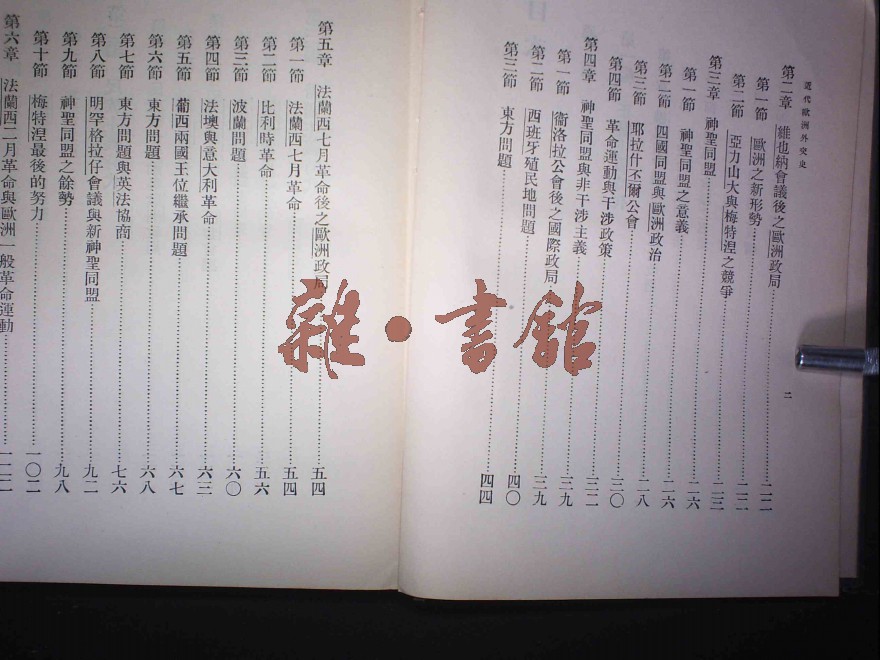 近代歐洲外交史
第二章 維也納會議後之歐洲政局
第一節 歐洲之新形勢……二二
第二節 亞力山大與梅特涅之競爭……二二
第三章 神聖同盟……二三
第一節 神聖同盟之意義……二六
第二節 四國同盟與歐洲政治……二六
第三節 耶拉什丕爾公會……二八
第四節 革命運動與干涉政策……三〇
第四章 神聖同盟與非干涉主義……三二
第一節 衞洛拉公會後之國際政局……三九
第二節 西班牙殖民地問題……三九
第三節 東方問題……四〇
四四
二
第五章 法蘭西七月革命後之歐洲政局……五四
第一節 法蘭西七月革命……五四
第二節 比利時革命……五六
第三節 波蘭問題……六〇
第四節 法墺與意大利革命……六三
第五節 葡西兩國王位繼承問題……六七
第六節 東方問題……六八
第七節 東方問題與英法協商……七六
第八節 明罕格拉仔會議與新神聖同盟……九二
第九節 神聖同盟之餘勢……九八
第十節 梅特涅最後的努力……一〇二
第六章 法蘭西二月革命與歐洲一般革命運動
雜·書館